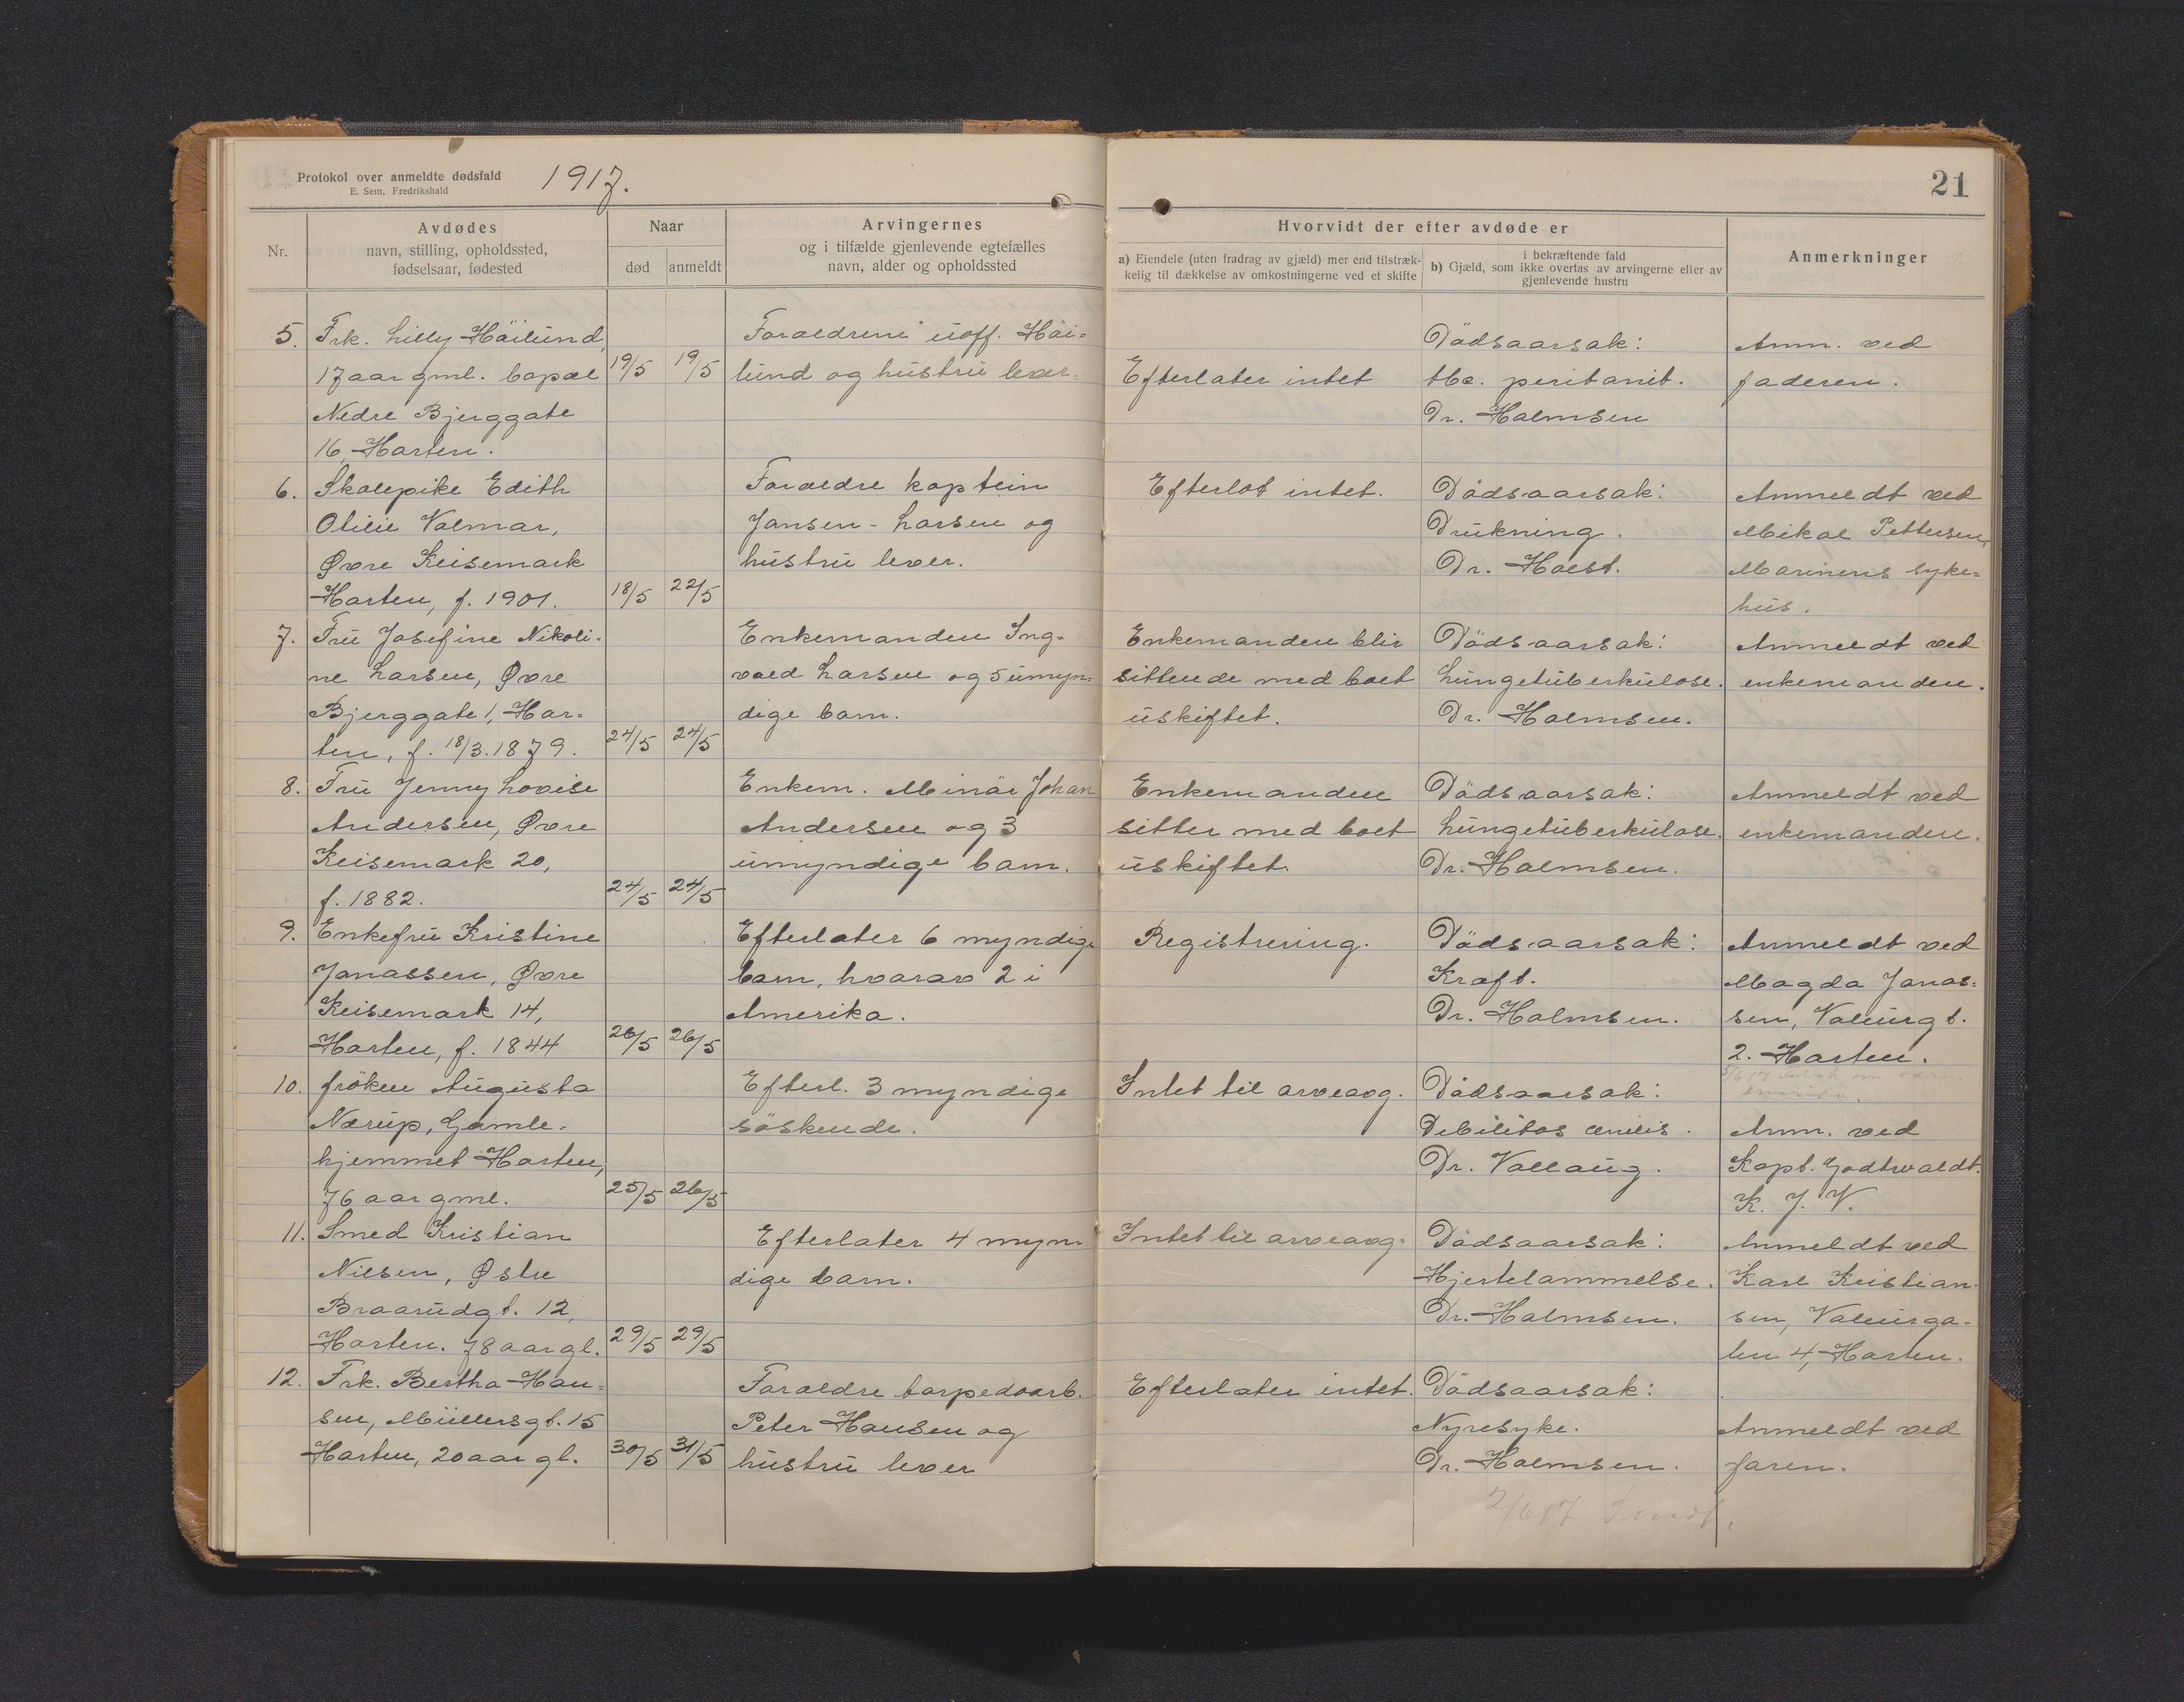 Protokol over anmeldte dødsfald
E. Sem, Fredrikshald
1917.
21
Nr.
Avdødes
navn, stilling, opholdssted,
fødselsaar, fødested
Naar
død
anmeldt
Arvingernes
og i tilfælde gjenlevende egtefælles
navn, alder og opholdssted
Hvorvidt der efter avdøde er
a) Eiendele (uten fradrag av gjæld) mer end tilstræk-
kelig til dækkelse av omkostningerne ved et skifte
i bekræftende fald
b) Gjæld, som ikke overtas av arvingerne eller av
gjenlevende hustru
Anmerkninger
5.
Frk. Lilly Höilund,
17 aar gml. bopæl
Nedre Bjerggate
16, Horten.
19/5
19/5
Forældrene uoff. Höi-
lund og hustru lever.
Efterlater intet
Dödsaarsak:
tbc. peritonit.
Dr. Holmsen
Anm. ved
faderen.
6.
Skolepike Edith
Otilie Volmar,
Øvre Keisemark
Horten, f. 1901.
18/5
22/5
Forældre kaptein
Jansen-Larsen og
hustru lever.
Efterlot intet.
Dödsaarsak:
Drukning.
Dr. Hoest.
Anmeldt ved
Mikal Pettersen,
Marinens syke-
hus.
7.
Fru Josefine Nikoli-
ne Larsen, Øvre
Bjerggate 1, Hor-
ten, f. 18/3.1879.
24/5
24/5
Enkemanden Ing-
vald Larsen og 5 umyn-
dige barn.
Enkemanden blir
sittende med boet
uskiftet.
Dödsaarsak:
Lungetuberkulose.
Dr. Holmsen.
Anmeldt ved
enkemanden.
8.
Fru Jenny Lovise
Andersen, Øvre
Keisemark 20,
f. 1882.
24/5
24/5
Enkem. Minör Johan
Andersen og 3
umyndige barn.
Enkemanden
sitter med boet
uskiftet.
Dödsaarsak:
Lungetuberkulose.
Dr. Holmsen.
Anmeldt ved
enkemanden.
9.
Enkefru Kristine
Jonassen, Øvre
Keisemark 14,
Horten, f. 1844
26/5
26/5
Efterlater 6 myndige
barn, hvorav 2 i
Amerika.
Registrering.
Dödsaarsak:
Kræft.
Dr. Holmsen.
Anmeldt ved
Magda Jonas-
sen, Vollurgt.
2. Horten.
10.
fröken Augusta
Nærup, Gamle-
hjemmet Horten,
76 aar gml.
25/5
26/5
Efterl. 3 myndige
söskende.
Intet til arveavg.
Dödsaarsak:
Debilitas cenilis.
Dr. Vollaug.
Anm. ved
Kapt. Godtwaldt.
K. J. V.
11.
Smed Kristian
Nilsen, Østre
Braarudgt. 12,
Horten. 78 aar gl.
29/5
29/5
Efterlater 4 myn-
dige barn.
Intet til arveavg.
Dödsaarsak:
Hjertelammelse.
Dr. Holmsen.
Anmeldt ved
Karl Kristian-
sen, Vollurga-
ten 4, Horten.
12.
Frk. Bertha Han-
sen, Müllersgt. 15
Horten, 20 aar gl.
30/5
31/5
Forældre torpedoarb.
Peter Hansen og
hustru lever
Efterlater intet.
Dödsaarsak:
Nyresyke.
Dr. Holmsen.
Anmeldt ved
faren.
2/6 17